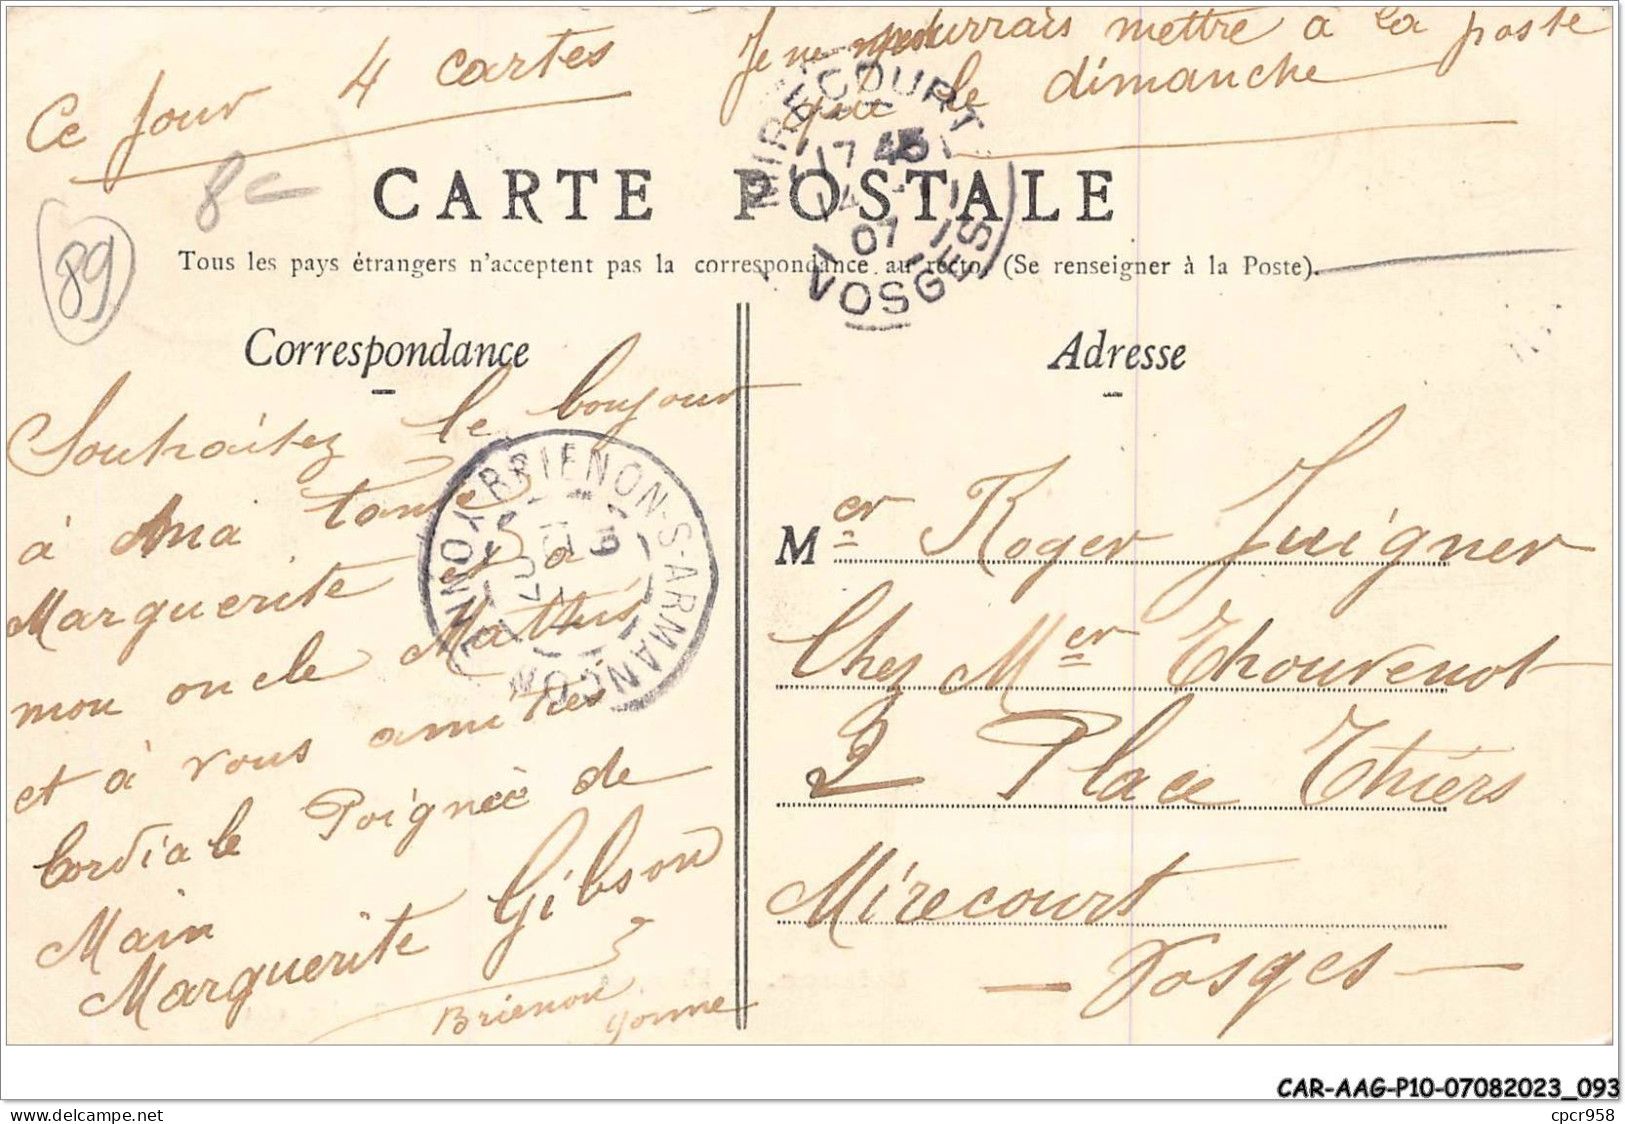 Ce jour 4 cartes
Je ne pourrais mettre à la poste
que le dimanche
8e
89
CARTE POSTALE
Tous les pays étrangers n'acceptent pas la correspondance au recto. (Se renseigner à la Poste).
MIRECOURT
17 45
07
VOSGES
Correspondance
Souhaitez le boujour
à ma tante
Marguerite et à
mon oncle Mathis
et à vous amitiés
Cordiale Poignée de
Main
Marguerite Gibson
Brienon
Yonne
BRIENON-S-ARMANÇON
YONNE
Adresse
Mer Roger Juigner
Chez Mer Thouvenot
2 Place Thiers
Mirecourt
- Vosges -
CAR-AAG-P10-07082023_093
cpcr958